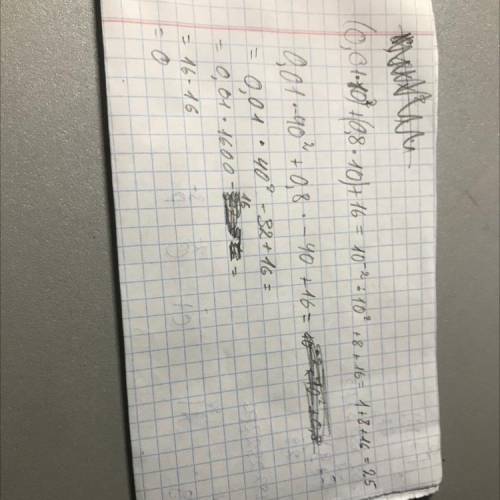 (0,01·10² + (0,8·10) + 16 = 10⁻² · 10² + 8 + 16 = 1 + 8 + 16 = 25
0,01·-40² + 0,8 · -40 + 16 =
= 0,01 · 40² - 32 + 16 =
= 0,01 · 1600 - 16 =
= 16 - 16
= 0